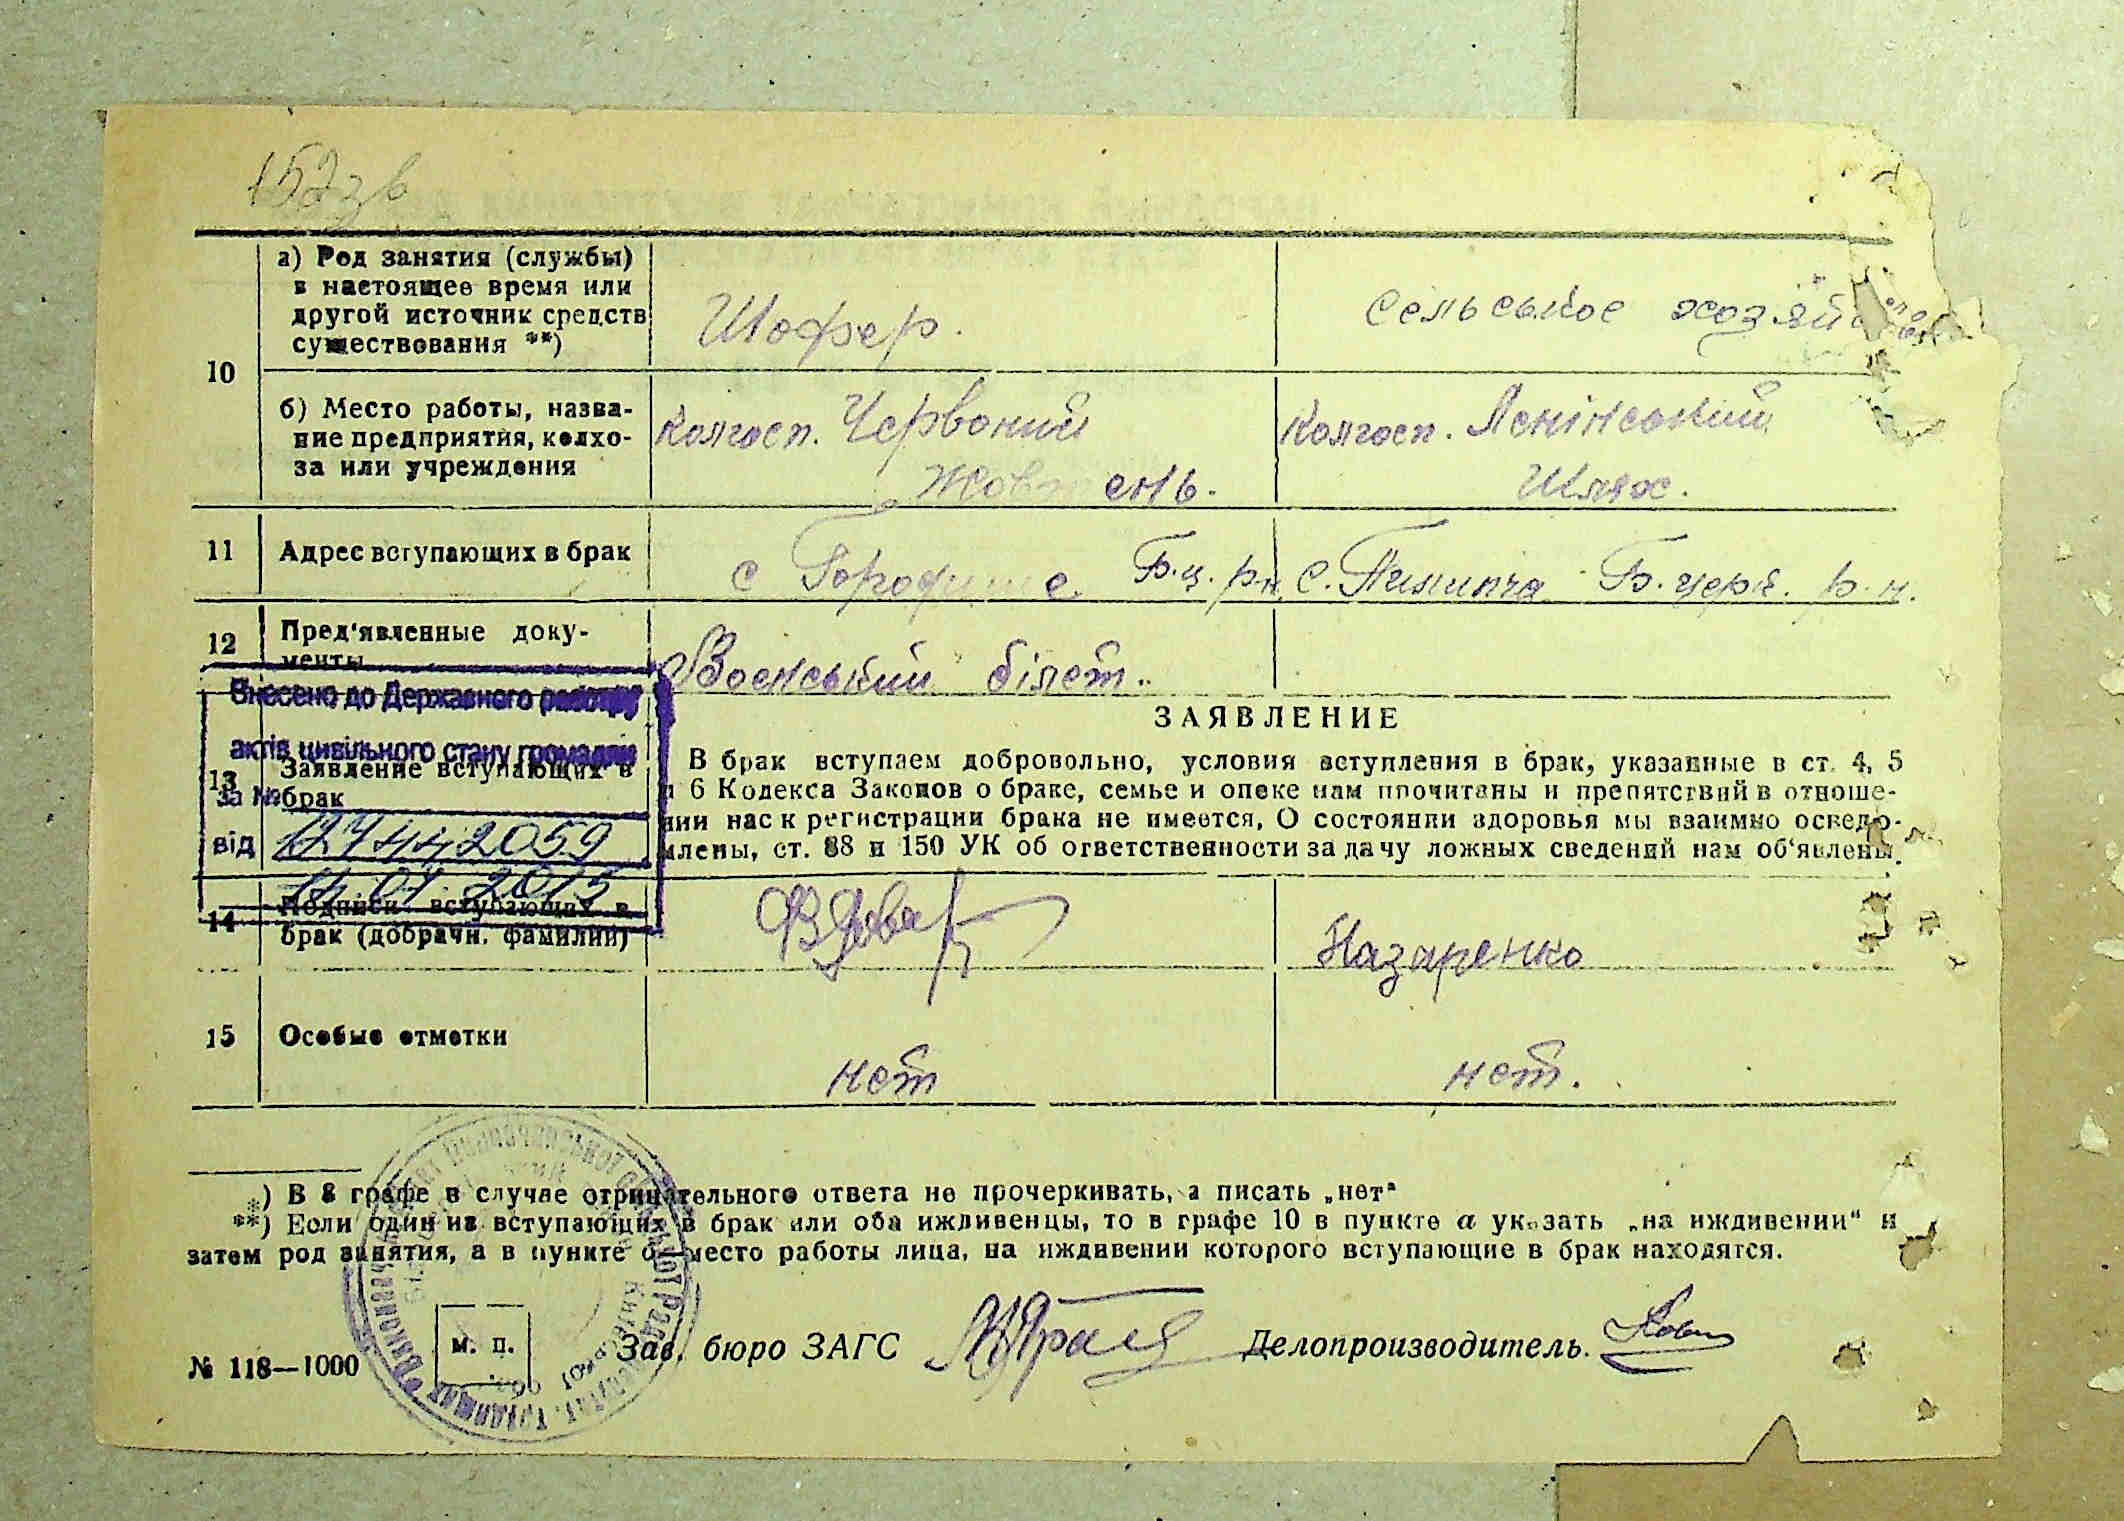 152зв
а) Род занятия (службы)
в настоящее время или
другой источник средств
существования **)
Шофер.
Сельськое хозяй
10
б) Место работы, назва-
ние предприятия, колхо-
за или учреждения
Колгосп. Червоний
Жовтень.
Колгосп. Ленінський
Шлях.
11
Адрес вступающих в брак
с Городище Б.ц. рн
с. Пилипча Б. церк. р-н.
12
Пред'явленные доку-
менты
Воєнський білет.
Внесено до Державного реєстру
актів цивільного стану громадян
за №
від
127442059
2015
13
Заявление вступающих в
брак
ЗАЯВЛЕНИЕ
В брак вступаем добровольно, условия вступления в брак, указанные в ст. 4, 5
и 6 Кодекса Законов о браке, семье и опеке нам прочитаны и препятствий в отноше-
нии нас к регистрации брака не имеется, О состоянии здоровья мы взаимно осведо-
млены, ст. 88 и 150 УК об ответственности за дачу ложных сведений нам об'явлены.
14
Подписи вступающих в
брак (добрачн. фамилии)
Назаренко
15
Особые отметки
нет
нет.
*) В 8 графе в случае отрицательного ответа не прочеркивать, а писать „нет"
**) Если один из вступающих в брак или оба иждивенцы, то в графе 10 в пункте а указать „на иждивении" и
затем род занятия, а в пункте б) место работы лица, на иждивении которого вступающие в брак находятся.
№ 118—1000
м. п.
Зав. бюро ЗАГС
Делопроизводитель.